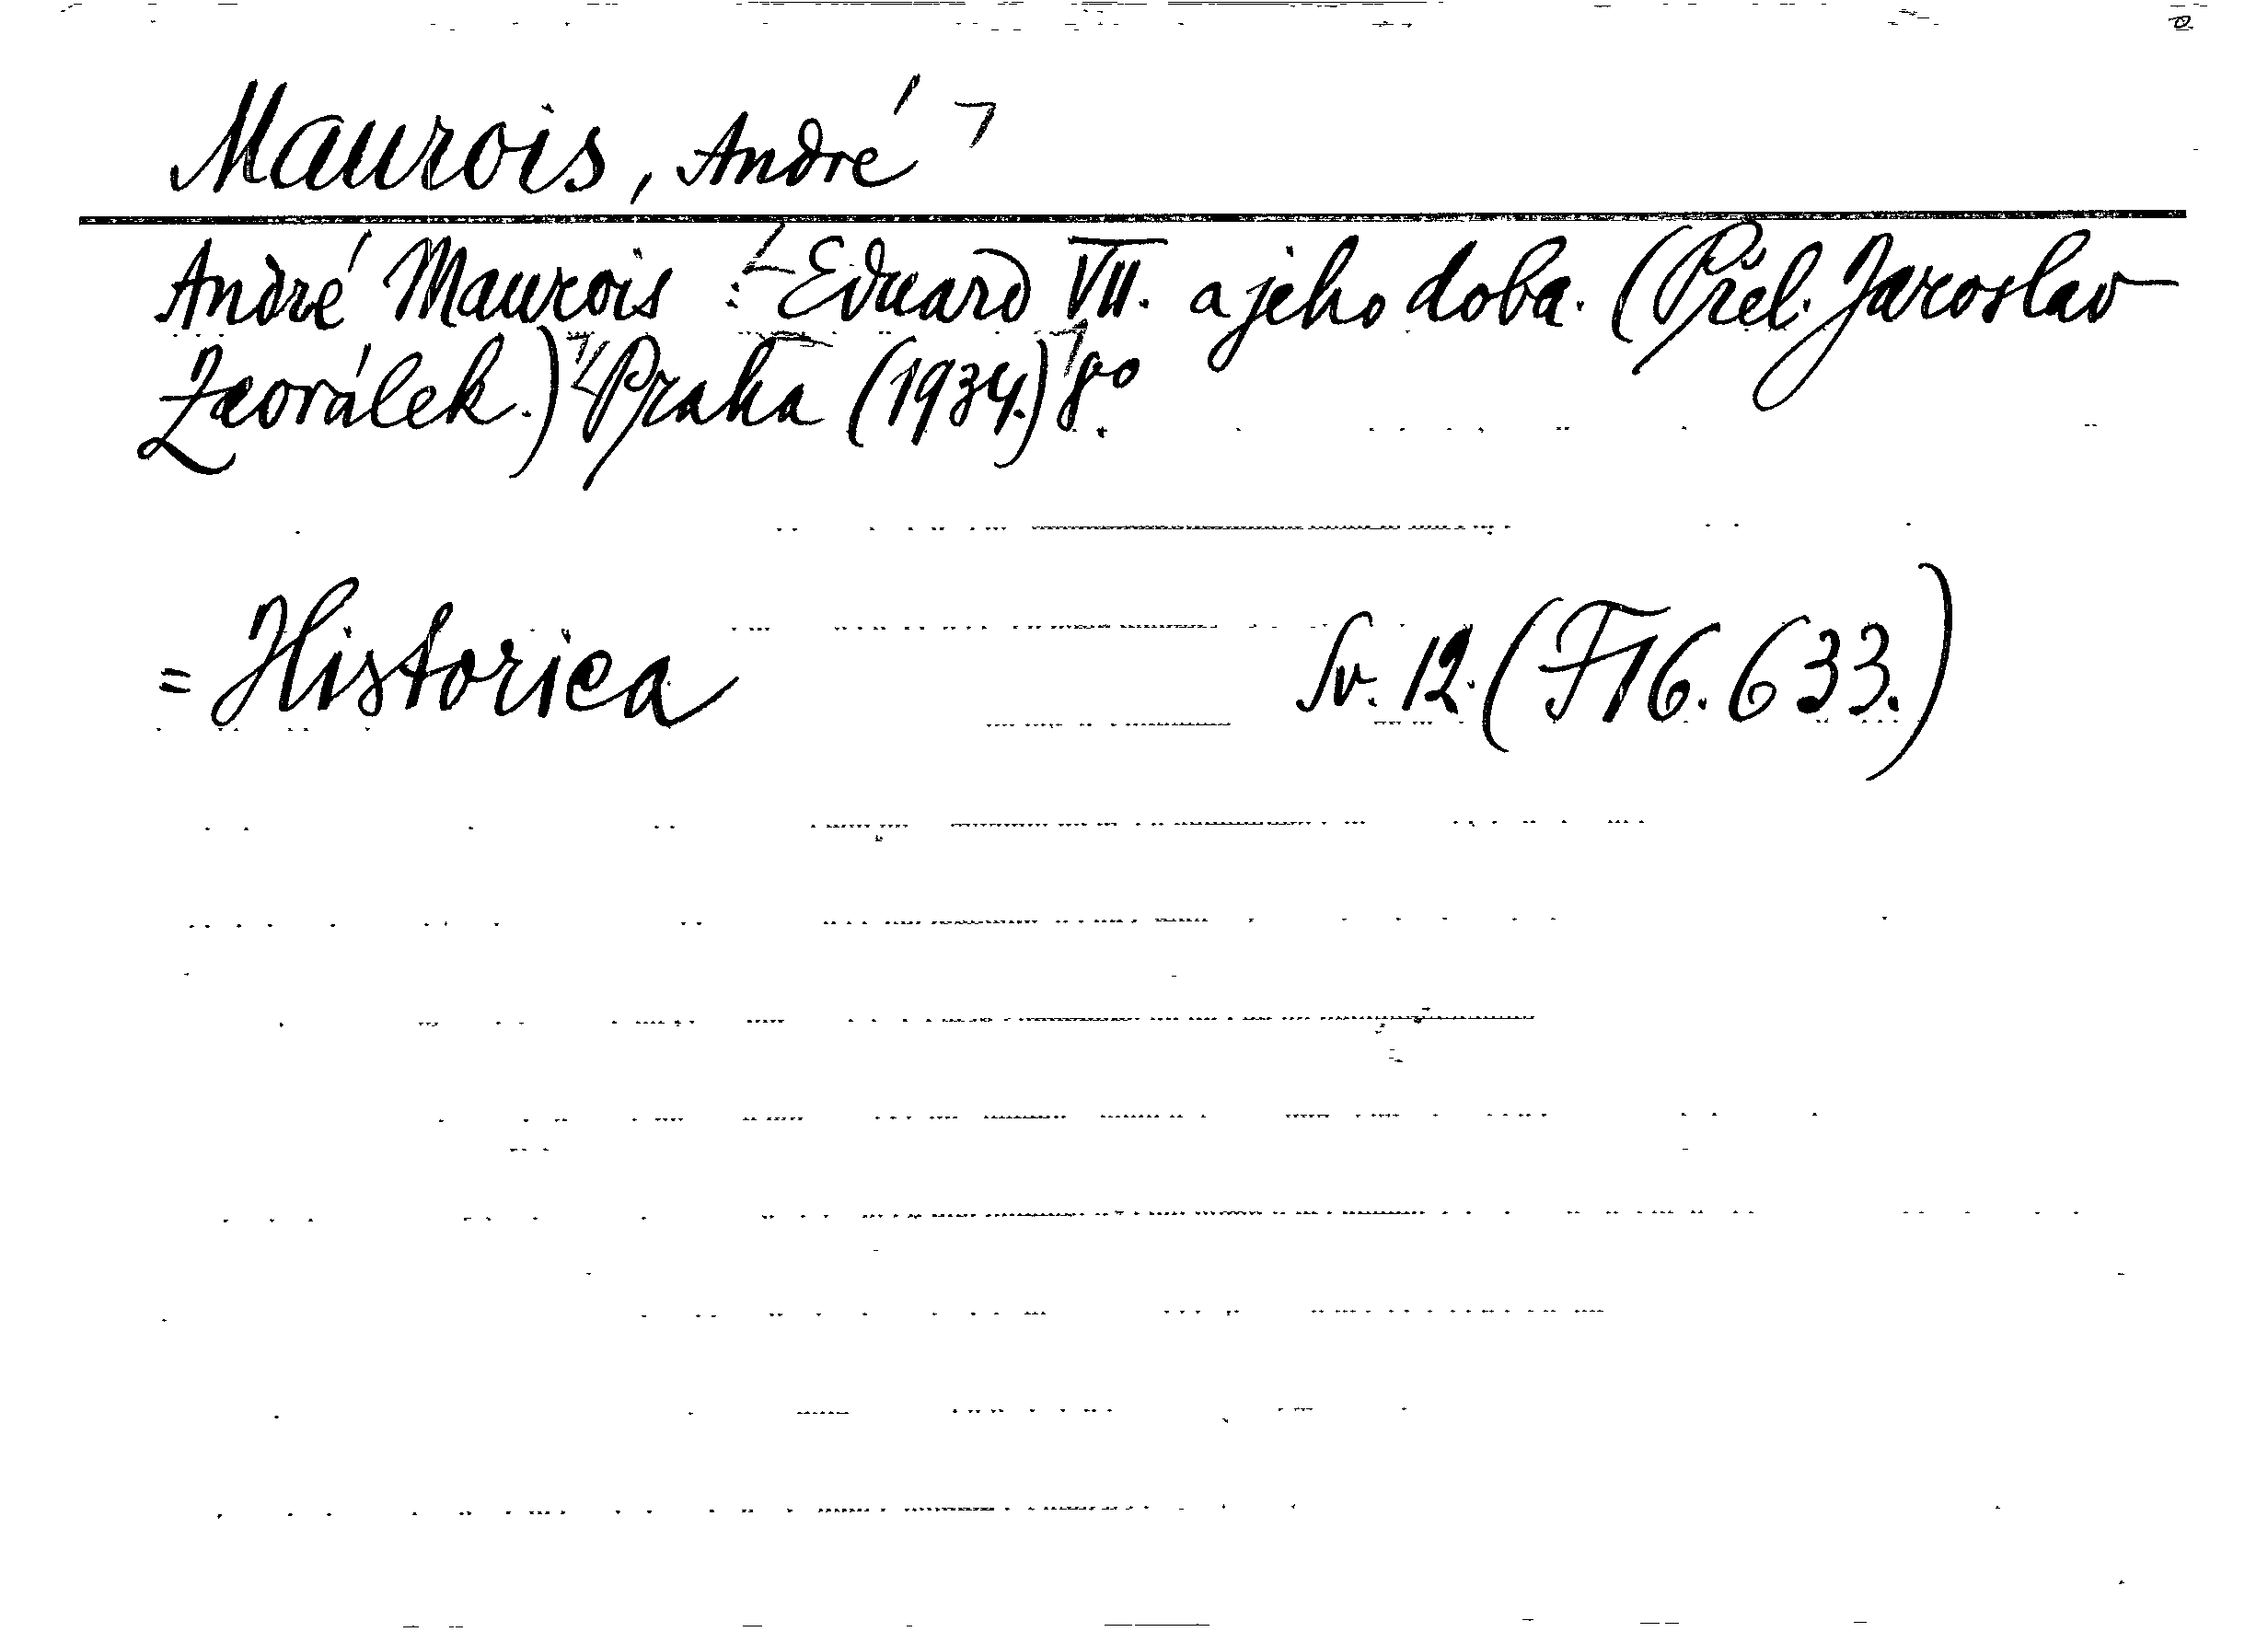 Maurois, André
André Maurois : Eduard VII. a jeho doba. (Přel. Jaroslav
Zaorálek.) Praha (1934.) 8o.
= Historica Sv. 12. (F 16.633.)